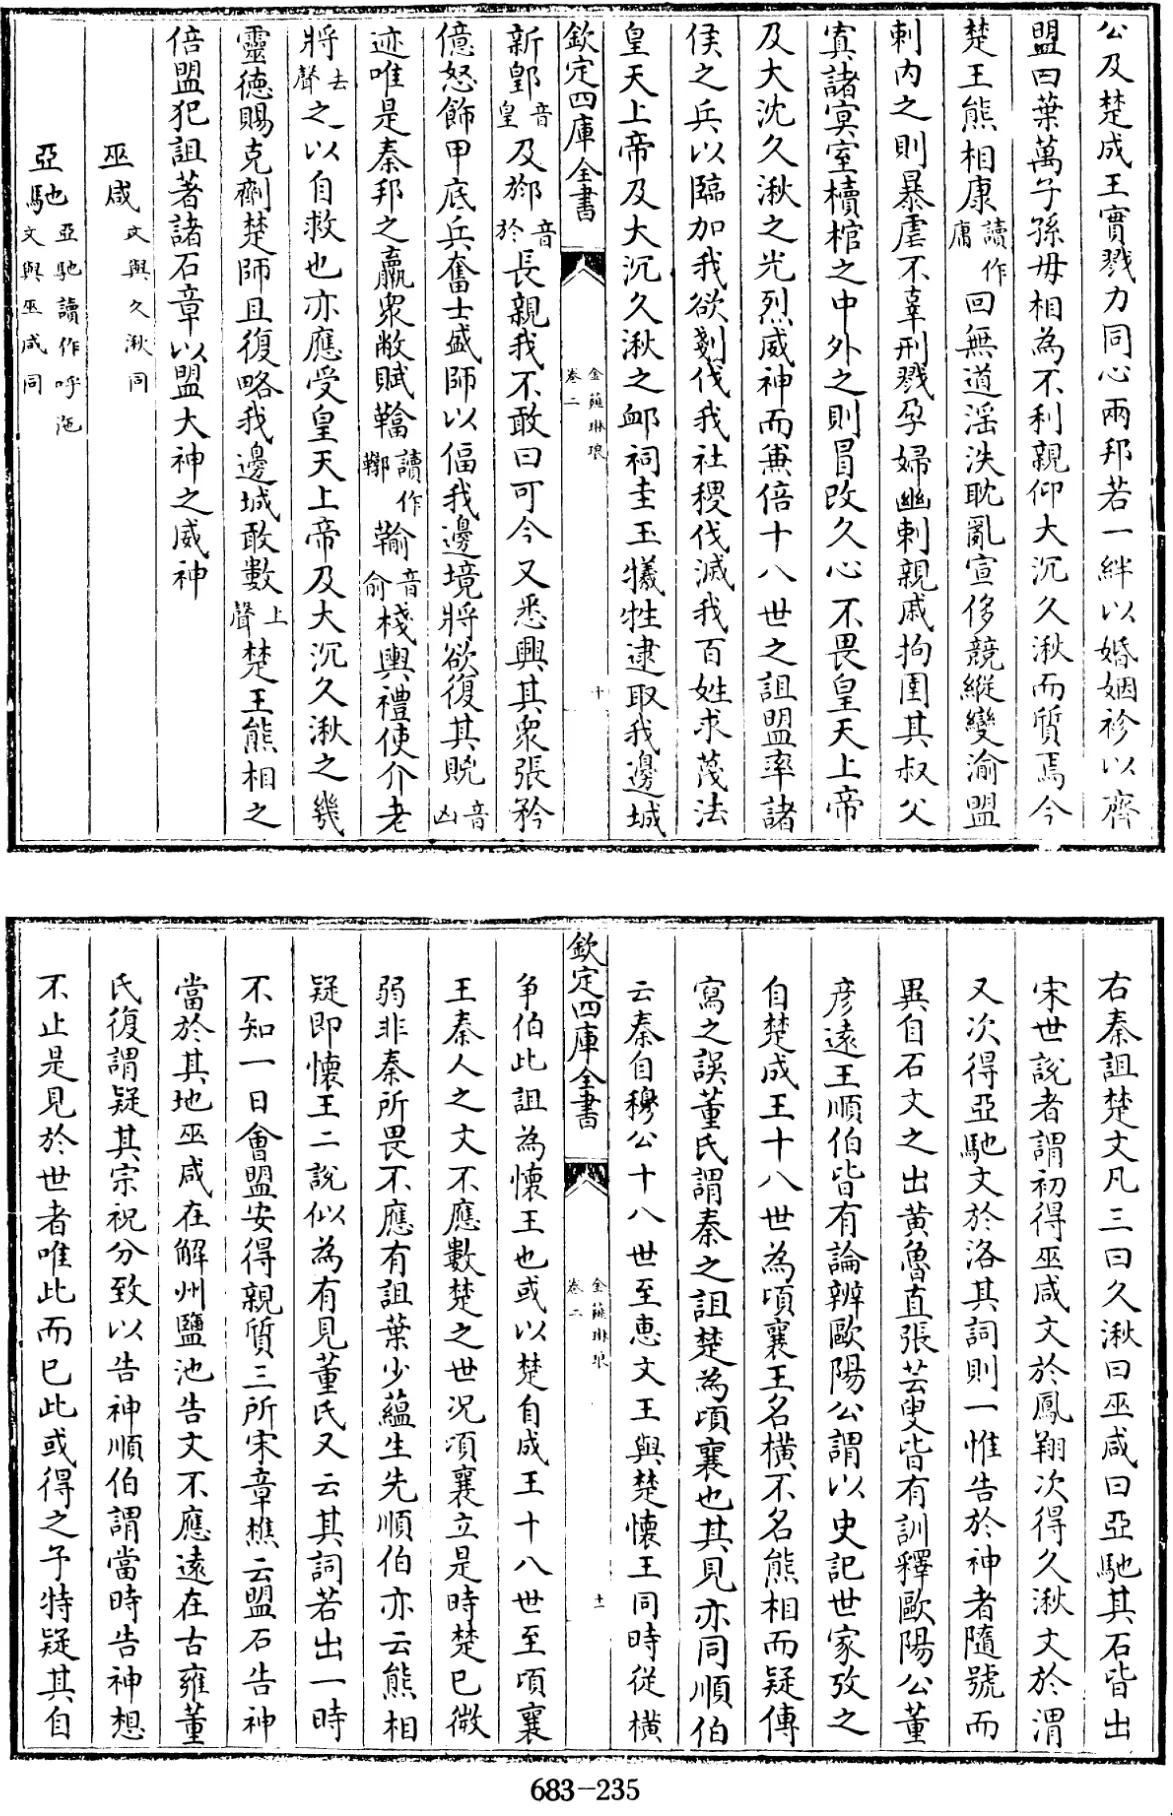 公及楚成王實戮力同心兩邦若一絆以婚姻袗以齊
盟曰葉萬子孫毋相為不利親仰大沉久湫而質焉今
楚王熊相康讀作庸回無道滛泆耽亂宣侈競縱變渝盟
刺内之則暴虐不辜刑戮孕婦幽刺親戚拘圉其叔父
寘諸㝠室櫝棺之中外之則冒改久心不畏皇天上帝
及大沈久湫之光烈威神而兼倍十八世之詛盟率諸
侯之兵以臨加我欲剗伐我社稷伐滅我百姓求蔑法
皇天上帝及大沉久湫之卹祠圭玉犧牲逮取我邊城
欽定四庫全書
金薤琳琅
卷二
十
新郢音皇及𨚲音於長親我不敢曰可今又悉興其衆張矜
億怒飾甲底兵奮士盛師以偪我邊境將欲復其貺音凶
迹唯是秦邦之羸衆敝賦䩹讀作鞹䩱音俞棧輿禮使介老
將去聲之以自救也亦應受皇天上帝及大沉久湫之幾
靈德賜克劑楚師且復略我邊城敢數上聲楚王熊相之
倍盟犯詛著諸石章以盟大神之威神
巫咸文與久湫同
亞駞亞駞讀作呼沲文與巫咸同
右秦詛楚文凡三曰久湫曰巫咸曰亞駞其石皆出
宋世説者謂初得巫咸文於鳳翔次得久湫文於渭
又次得亞駞文於洛其詞則一惟告於神者隨號而
異自石文之出黄魯直張芸叟皆有訓釋歐陽公董
彦遠王順伯皆有論辨歐陽公謂以史記世家攷之
自楚成王十八世為頃襄王名横不名熊相而疑傳
寫之誤董氏謂秦之詛楚為頃襄也其見亦同順伯
云秦自穆公十八世至惠文王與楚懐王同時從横
欽定四庫全書
金薤琳琅
卷二
十一
爭伯此詛為懐王也或以楚自成王十八世至頃襄
王秦人之文不應數楚之世况頃襄立是時楚已微
弱非秦所畏不應有詛葉少蘊生先順伯亦云熊相
疑即懐王二說似為有見董氏又云其詞若出一時
不知一日會盟安得親質三所宋章樵云盟石告神
當於其地巫咸在解州鹽池告文不應遠在古雍董
氏復謂疑其宗祝分致以告神順伯謂當時告神想
不止是見於世者唯此而已此或得之予特疑其自
683-235